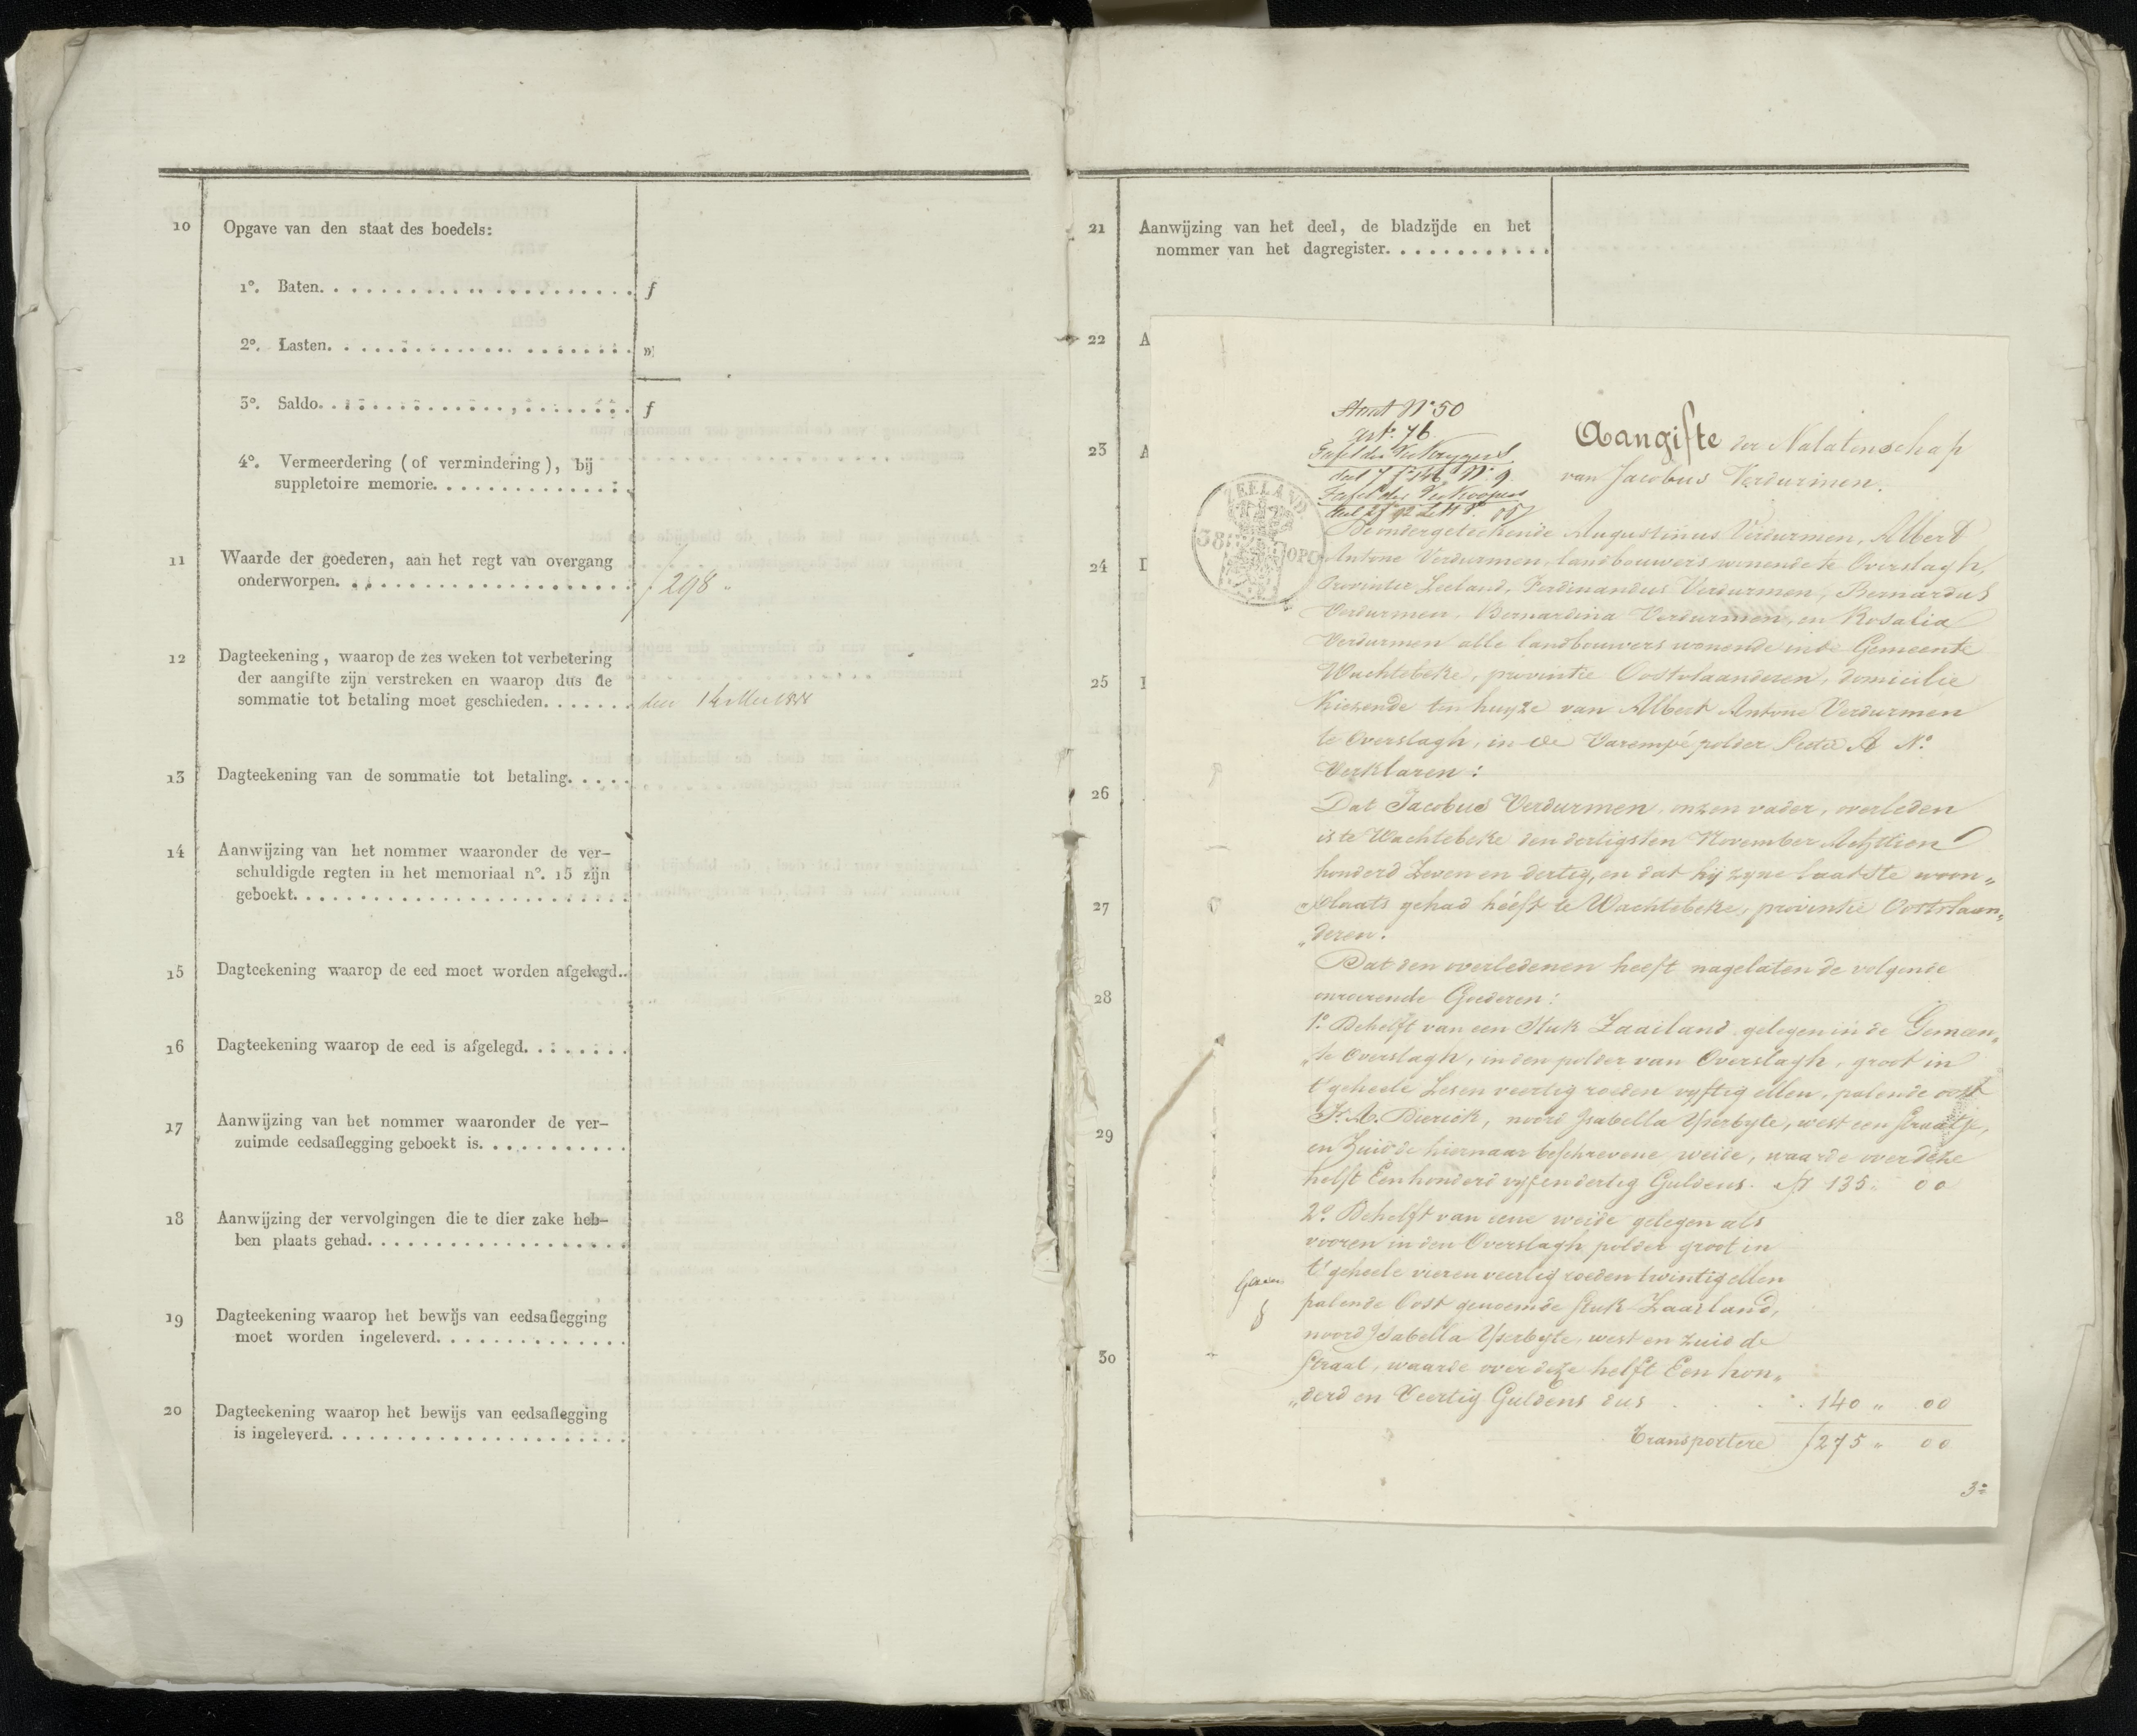 10 Opgave van den staat des boedels:
1°. Baten. f
2°. Lasten. »
3°. Saldo. f
4°. Vermeerdering (of vermindering), bij
suppletoire memorie.
11 Waarde der goederen, aan het regt van overgang
onderworpen. f 298 „
12 Dagteekening, waarop de zes weken tot verbetering
der aangifte zijn verstreken en waarop dus de
sommatie tot betaling moet geschieden. den 14 Mei
13 Dagteekening van de sommatie tot betaling.
14 Aanwijzing van het nommer waaronder de ver-
schuldigde regten in het memoriaal n°. 15 zijn
geboekt.
15 Dagteekening waarop de eed moet worden afgelegd.
16 Dagteekening waarop de eed is afgelegd.
17 Aanwijzing van het nommer waaronder de ver-
zuimde eedsaflegging geboekt is.
18 Aanwijzing der vervolgingen die te dier zake heb-
ben plaats gehad.
19 Dagteekening waarop het bewijs van eedsaflegging
moet worden ingeleverd.
20 Dagteekening waarop het bewijs van eedsaflegging
is ingeleverd.
21 Aanwijzing van het deel, de bladzijde en het
nommer van het dagregister.
22 A
23 A
24
25
26
27
28
29
30
N° 50
art. 76
ZEELAND
38
OPC
Aangifte der Nalatenschap
van Jacobus Verdurmen.
De ondergeteekende Augustinus Verdurmen, Albert
Antone Verdurmen, landbouwers wonende te Overslagh,
Provintie Zeeland, Ferdinandus Verdurmen, Bernardus
Verdurmen, Bernardina Verdurmen, en Rosalia
Verdurmen alle landbouwers wonende in de Gemeente
Wachtebeke, provintie Oostvlaanderen, domicilie
Kiezende ten huyze van Albert Antone Verdurmen
te Overslagh, in de Varempé polder A N°
Verklaren:
Dat Jacobus Verdurmen, onzen vader, overleden
is te Wachtebeke den dertigsten November Achttien
honderd Zeven en dertig, en dat hij zyne laatste woon„
„plaats gehad heeft te Wachtebeke, provintie Oostvlaan„
„deren.
Dat den overledenen heeft nagelaten de volgende
onroerende Goederen:
1° De helft van een Stuk Zaailand gelegen in de Gemeen„
„te Overslagh, in den polder van Overslagh, groot in
t'geheele Zesen veertig roeden vyftig ellen, palende oost
A. Dierick, noord Isabella Yserbyte, west een Straatje,
en Zuid de hiernaar beschrevene weide, waarde over deze
helft Een honderd vyf en dertig Guldens. f 135 „ 00
2° De helft van eene weide gelegen als
vooren in den Overslagh polder groot in
t'geheele vieren veertig roeden twintig ellen
palende Oost genoemde Stuk Zaailand,
noord Isabella Yserbyte, west en zuid de
Straat, waarde over deze helft Een hon„
„derd en Veertig Guldens dus 140 „ 00
Transportere f 275 „ 00
3°